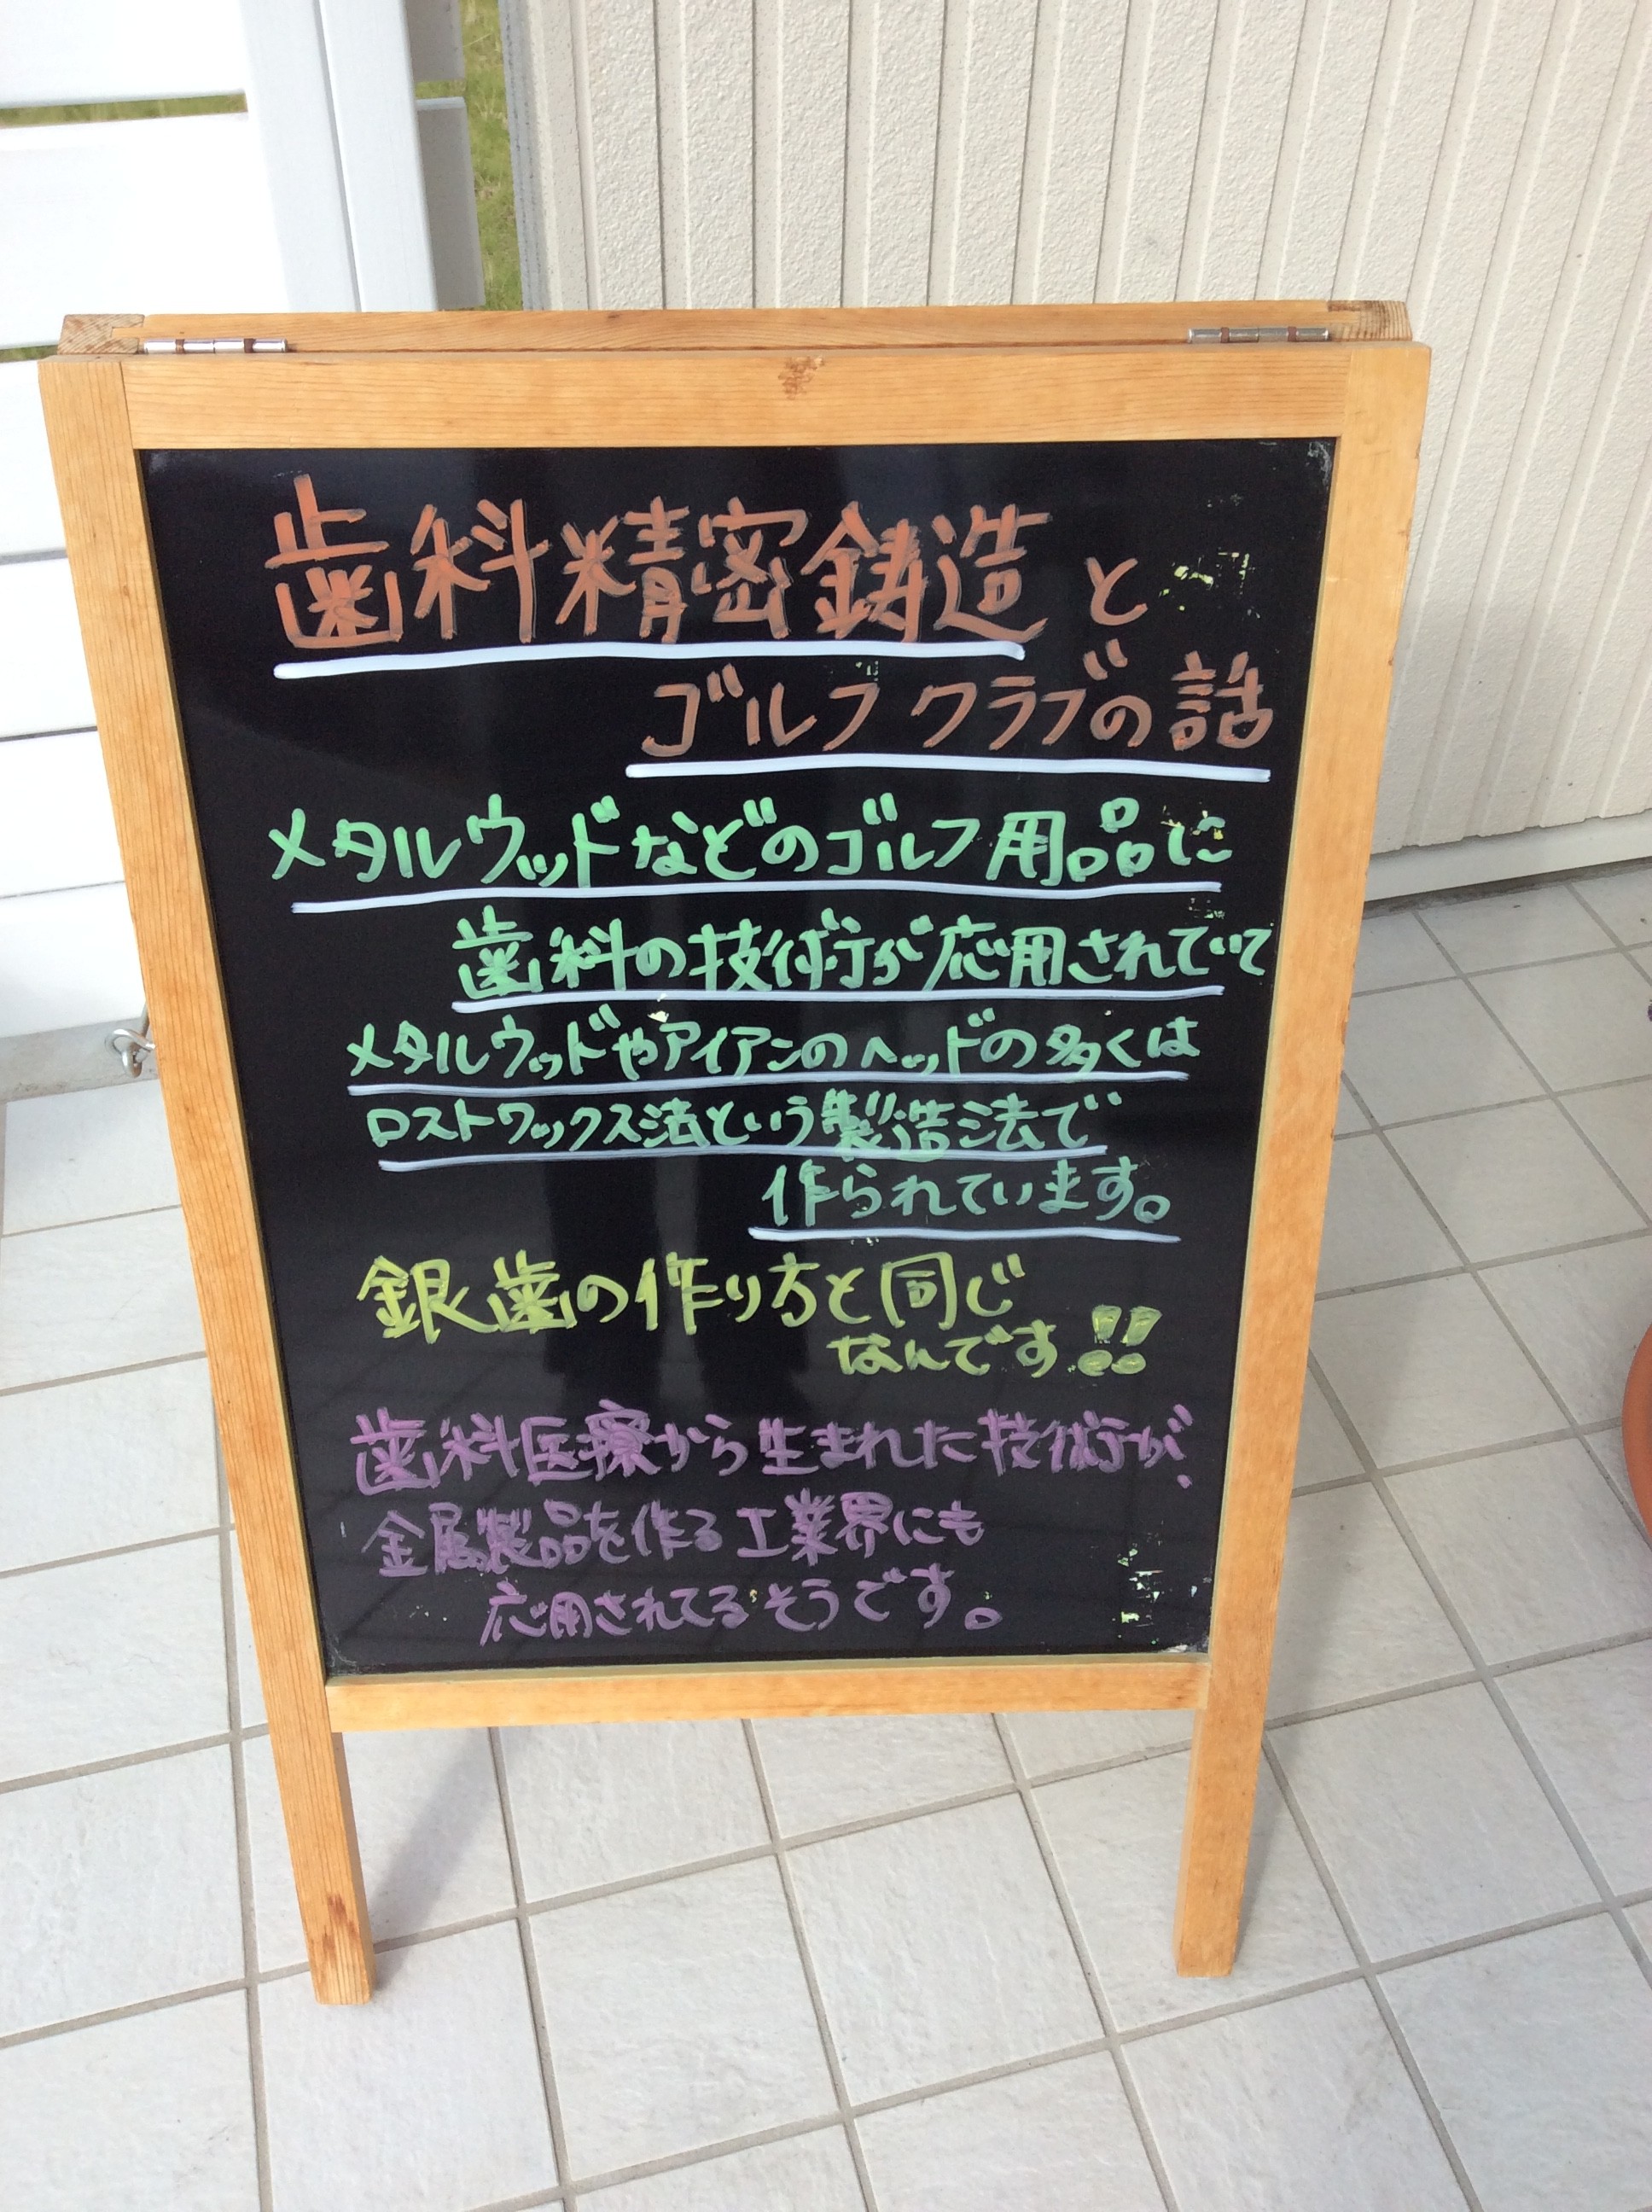 歯科精密鋳造と
ゴルフクラブの話
メタルウッドなどのゴルフ用品に
歯科の技術が応用されていて
メタルウッドやアイアンのヘッドの多くは
ロストワックス法という製造法で
作られています。
銀歯の作り方と同じ
なんです!!
歯科医療から生まれた技術が、
金属製品を作る工業界にも
応用されてるそうです。